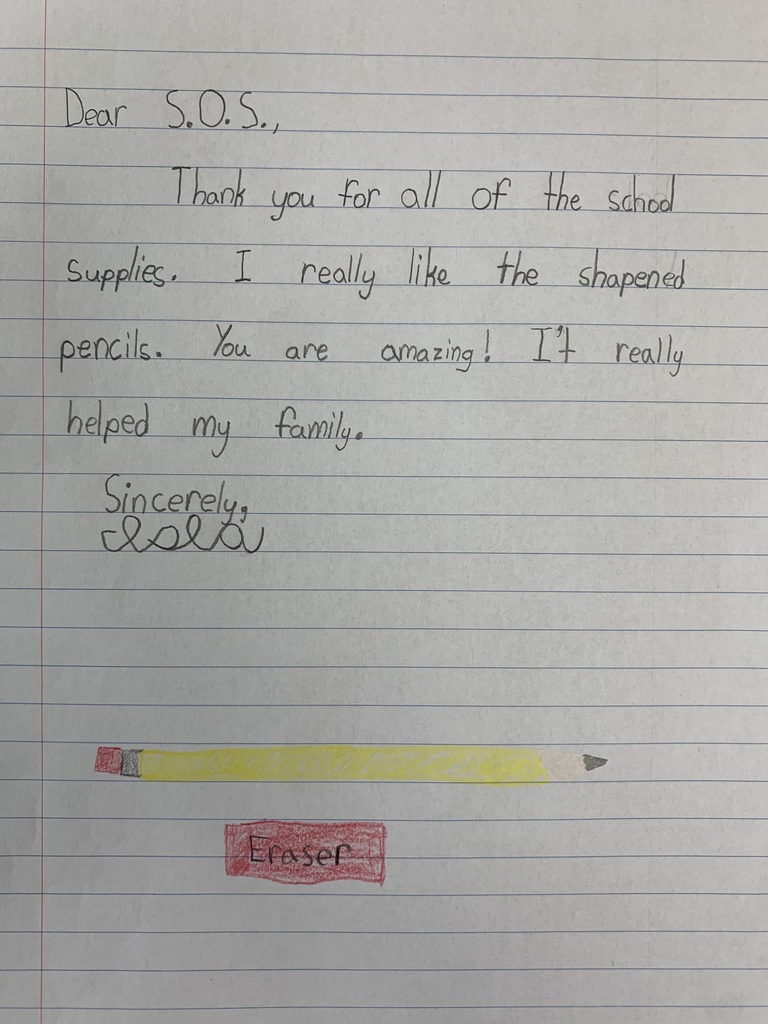 Dear S.O.S.,
Thank you for all of the school
supplies. I really like the shapened
pencils. You are amazing! I't really
helped my family.
Sincerely,
Eraser